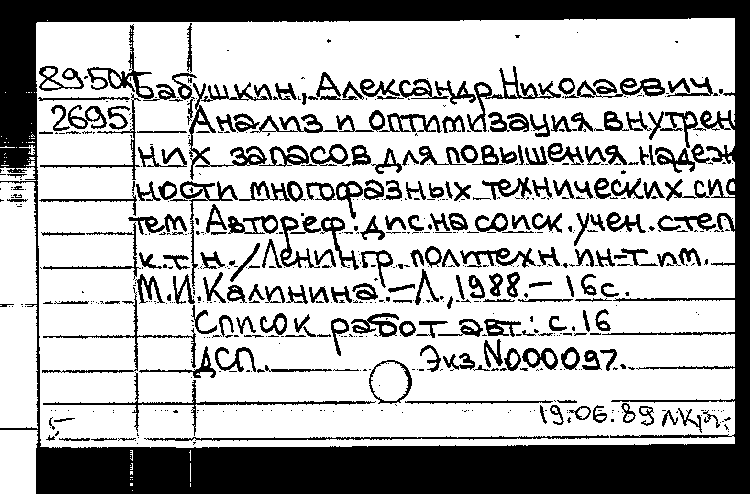 89-50к Бабушкин, Александр Николаевич.
2695 Анализ и оптимизация внутрен
них запасов для повышения надеж
ности многофазных технических сис
тем: Автореф. дис. на соиск. учен. степ
к.т.н. /Ленингр. политехн. ин-т им.
М.И. Калинина. - Л., 1988. - 16с.
Список работ авт.: с. 16
ДСП. Экз. N000097.
5 19.06.89